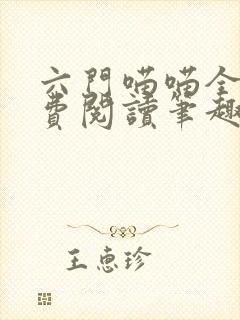 六門喵喵全
費閱讀筆趣
王惠珍